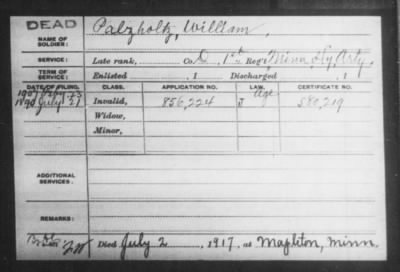 DEAD
NAME OF SOLDIER: Palzholtz, William.
SERVICE: Late rank, Co. D, 1st Reg't Minn Hy Arty.
TERM OF SERVICE: Enlisted , 1 Discharged , 1
DATE OF FILING. CLASS. APPLICATION NO. LAW. CERTIFICATE NO.
1907 Feby 23 Age
1890 July 21 Invalid, 856,224 J 580,219
Widow,
Minor,
ADDITIONAL SERVICES:
REMARKS:
Died July 2, 1917, at Mapleton, Minn.